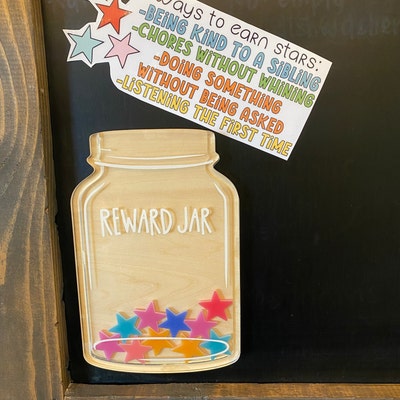 ways to earn stars:
-BEING KIND TO A SIBLING
-CHORES WITHOUT WHINING
-DOING SOMETHING
WITHOUT BEING ASKED
-LISTENING THE FIRST TIME
REWARD JAR